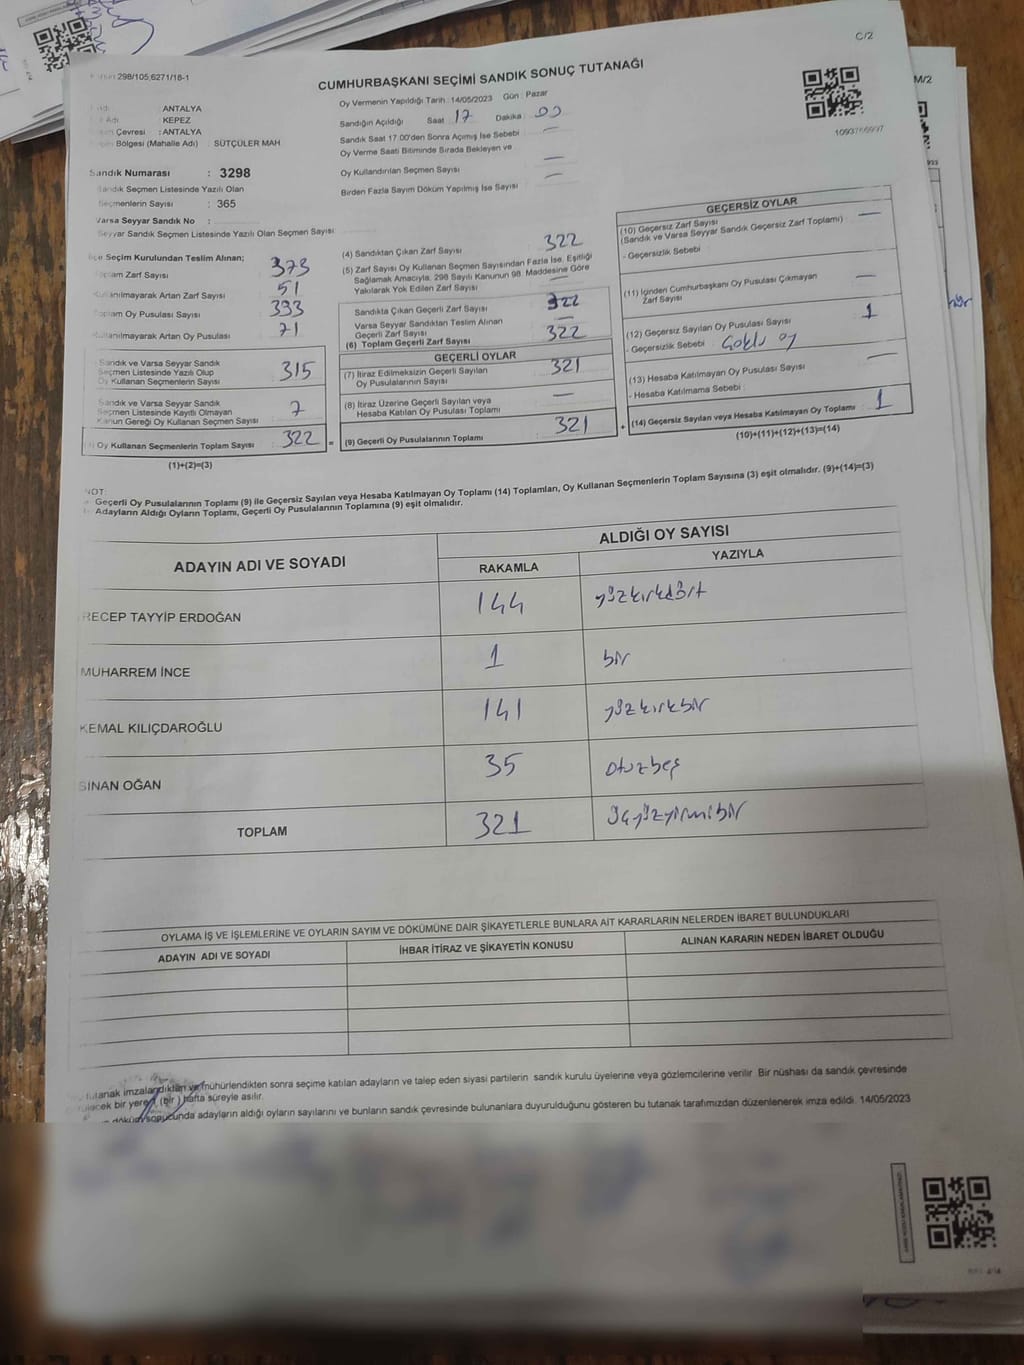 C/2
298/105;6271/16-1
CUMHURBAŞKANI SEÇİMİ SANDIK SONUÇ TUTANAĞI
M/2
1093766997
: ANTALYA
Adı : KEPEZ
Çevresi : ANTALYA
Bölgesi (Mahalle Adı) : SÜTÇÜLER MAH
Sandık Numarası : 3298
Sandık Seçmen Listesinde Yazılı Olan
Seçmenlerin Sayısı : 365
Varsa Seyyar Sandık No :
Seyyar Sandık Seçmen Listesinde Yazılı Olan Seçmen Sayısı
Oy Vermenin Yapıldığı Tarih : 14/05/2023 Gün : Pazar
Sandığın Açıldığı Saat 17 Dakika 00
Sandık Saat 17.00'den Sonra Açımış İse Sebebi —
Oy Verme Saati Bitiminde Sırada Bekleyen ve
Oy Kullandırılan Seçmen Sayısı —
Birden Fazla Sayım Döküm Yapılmış İse Sayısı —
İlçe Seçim Kurulundan Teslim Alınan;
Toplam Zarf Sayısı 373
Kullanılmayarak Artan Zarf Sayısı 51
Toplam Oy Pusulası Sayısı 393
Kullanılmayarak Artan Oy Pusulası 71
Sandık ve Varsa Seyyar Sandık
Seçmen Listesinde Yazılı Olup
Oy Kullanan Seçmenlerin Sayısı 315
Sandık ve Varsa Seyyar Sandık
Seçmen Listesinde Kayıtlı Olmayan
Kanun Gereği Oy Kullanan Seçmen Sayısı 7
Oy Kullanan Seçmenlerin Toplam Sayısı : 322 =
(1)+(2)=(3)
(4) Sandıktan Çıkan Zarf Sayısı 322
(5) Zarf Sayısı Oy Kullanan Seçmen Sayısından Fazla İse, Eşitliği
Sağlamak Amacıyla, 298 Sayılı Kanunun 98. Maddesine Göre
Yakılarak Yok Edilen Zarf Sayısı —
Sandıkta Çıkan Geçerli Zarf Sayısı 322
Varsa Seyyar Sandıktan Teslim Alınan
Geçerli Zarf Sayısı —
(6) Toplam Geçerli Zarf Sayısı 322
GEÇERLİ OYLAR
(7) İtiraz Edilmeksizin Geçerli Sayılan
Oy Pusulalarının Sayısı : 321
(8) İtiraz Üzerine Geçerli Sayılan veya
Hesaba Katılan Oy Pusulası Toplamı —
(9) Geçerli Oy Pusulalarının Toplamı : 321 +
GEÇERSİZ OYLAR
(10) Geçersiz Zarf Sayısı
(Sandık ve Varsa Seyyar Sandık Geçersiz Zarf Toplamı) —
- Geçersizlik Sebebi
(11) İçinden Cumhurbaşkanı Oy Pusulası Çıkmayan
Zarf Sayısı —
(12) Geçersiz Sayılan Oy Pusulası Sayısı 1
- Geçersizlik Sebebi Çoklu oy
(13) Hesaba Katılmayan Oy Pusulası Sayısı —
- Hesaba Katılmama Sebebi :
(14) Geçersiz Sayılan veya Hesaba Katılmayan Oy Toplamı : 1
(10)+(11)+(12)+(13)=(14)
NOT:
Geçerli Oy Pusulalarının Toplamı (9) ile Geçersiz Sayılan veya Hesaba Katılmayan Oy Toplamı (14) Toplamları, Oy Kullanan Seçmenlerin Toplam Sayısına (3) eşit olmalıdır. (9)+(14)=(3)
Adayların Aldığı Oyların Toplamı, Geçerli Oy Pusulalarının Toplamına (9) eşit olmalıdır.
ADAYIN ADI VE SOYADI
ALDIĞI OY SAYISI
RAKAMLA YAZIYLA
RECEP TAYYİP ERDOĞAN 144 yüzkırkdört
MUHARREM İNCE 1 bir
KEMAL KILIÇDAROĞLU 141 yüzkırkbir
SİNAN OĞAN 35 otuzbeş
TOPLAM 321 üçyüzyirmibir
OYLAMA İŞ VE İŞLEMLERİNE VE OYLARIN SAYIM VE DÖKÜMÜNE DAİR ŞİKAYETLERLE BUNLARA AİT KARARLARIN NELERDEN İBARET BULUNDUKLARI
ADAYIN ADI VE SOYADI İHBAR İTİRAZ VE ŞİKAYETİN KONUSU ALINAN KARARIN NEDEN İBARET OLDUĞU
tutanak imzalandıktan ve mühürlendikten sonra seçime katılan adayların ve talep eden siyasi partilerin sandık kurulu üyelerine veya gözlemcilerine verilir Bir nüshası da sandık çevresinde
bir yere 1 (bir) hafta süreyle asılır.
döküm sonucunda adayların aldığı oyların sayılarını ve bunların sandık çevresinde bulunanlara duyurulduğunu gösteren bu tutanak tarafımızdan düzenlenerek imza edildi. 14/05/2023